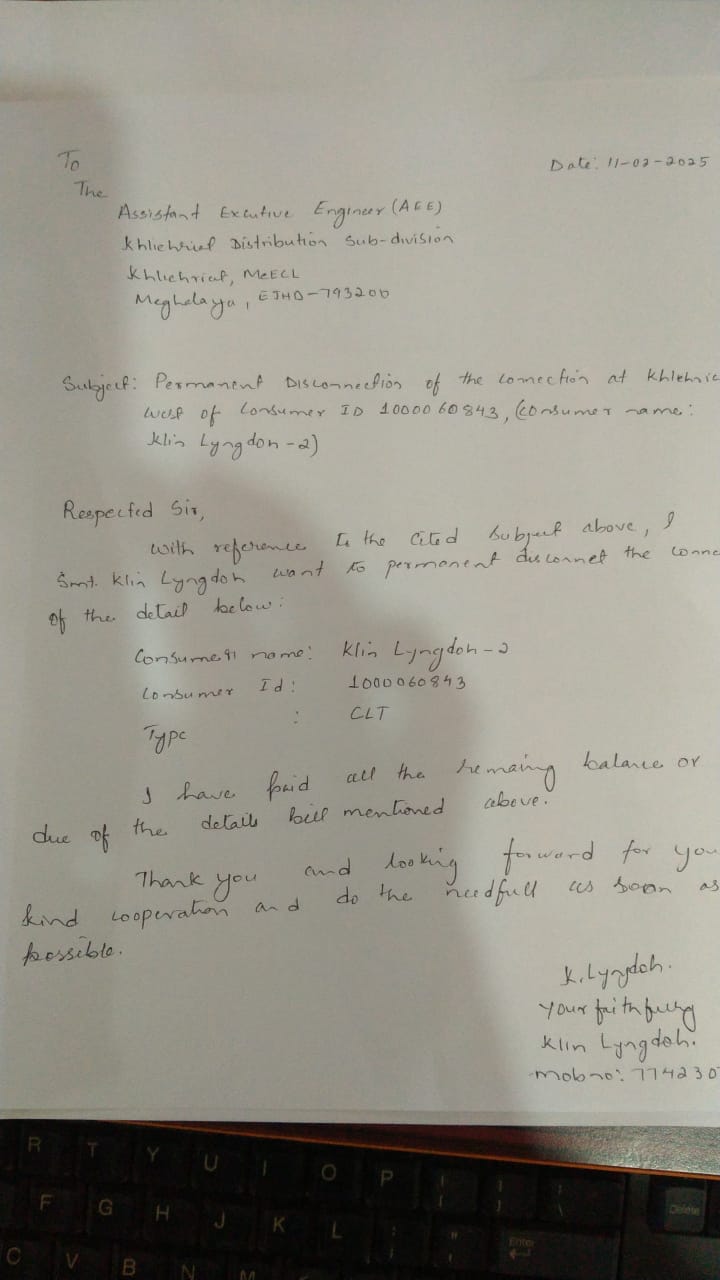 To
Date: 11-02-2025
The
Assistant Excutive Engineer (AEE)
Khliehriat Distribution Sub-division
Khliehriat, MeECL
Meghalaya, EJHD-793200
Subject: Permanent Disconnection of the connection at Khlehric
west of Consumer ID 1000060843, (consumer name:
Klin Lyngdoh-2)
Respected Sir,
With reference to the cited subject above, I
Smt. Klin Lyngdoh want to permanent disconnet the conne
of the detail below:
Consumer name: Klin Lyngdoh-2
Consumer Id: 1000060843
Type : CLT
I have paid all the remaing balance or
due of the details bill mentioned above.
Thank you and looking forword for you
kind cooperation and do the needfull as soon as
possible.
K. Lyngdoh.
Your faithfully
Klin Lyngdoh.
mob no: 7742307
R T Y U I O P
F G H J K L Enter
Delete
C V B N M